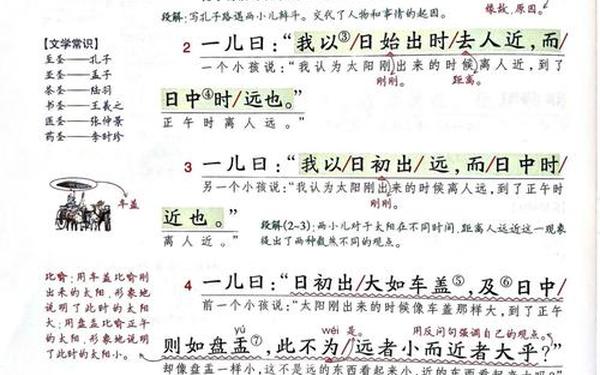 段解：写孔子路遇两小儿辩斗。交代了人物和事情的起因。
缘故，原因。
【文学常识】
至圣——孔子
亚圣——孟子
茶圣——陆羽
书圣——王羲之
医圣——张仲景
药圣——李时珍
2 一儿曰：“我以③/日始出时/去人近，而/
一个小孩说：“我认为太阳刚刚出来的时候离人近，到了
刚刚。
距离。
日中④时/远也。”
正午时离人远。”
3 一儿曰：“我以/日初出/远，而/日中时/
另一个小孩说：“我认为太阳刚出来的时候离人远，到了正午时
刚刚。
近也。”
离人近。”
段解(2~3)：两小儿对于太阳在不同时间，距离人远近这一现象
提出了两种截然不同的观点。
车盖
4 一儿曰：“日初出/大如车盖⑤，及⑥日中/
前一个小孩说：“太阳刚出来的时候像车盖那样大，到了正午
比喻：用车盖比喻刚
出来的太阳，形象地
说明了此时的太阳
大；用盘盂比喻正午
的太阳，形象地说明
了此时的太阳小。
yú wéi 是。 用反问句强调自己的观点。
则如盘盂⑦，此不为/远者小而近者大乎？”
却像盘盂一样，这不是远的东西看起来小，近的东西看起来大吗？”